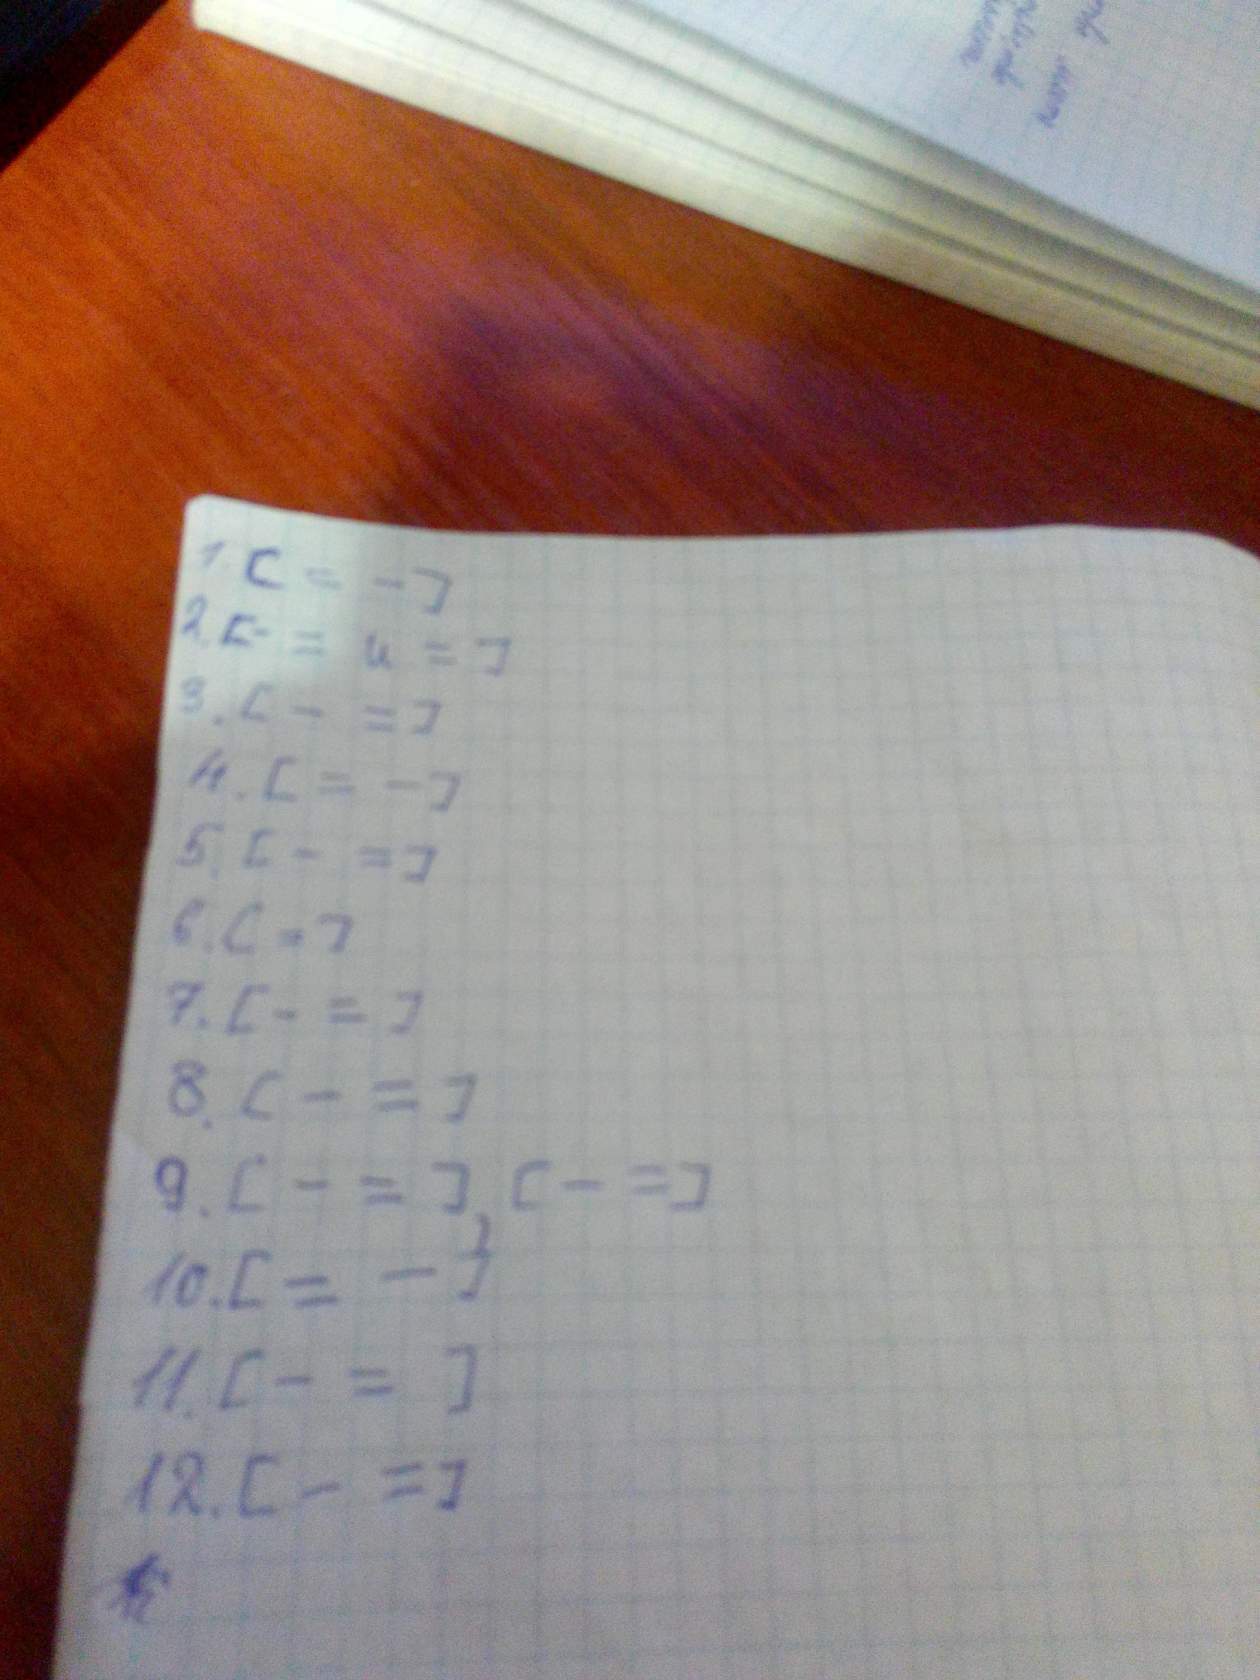 1. [ = - ]
2. [ - = и = ]
3. [ - = ]
4. [ = - ]
5. [ - = ]
6. [ = ]
7. [ - = ]
8. [ - = ]
9. [ - = ], [ - = ]
10. [ = - ]
11. [ - = ]
12. [ - = ]